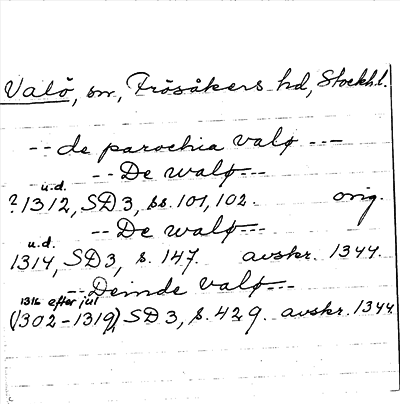 Valö, sn, Frösåkers hd, Stockh.l.
-- de parochia valø ---
-- De walø ---
u.d.
? 1312, SD 3, ss. 101, 102. orig.
-- De walø ---
u.d.
1314, SD 3, s. 147. avskr. 1344.
-- Deinde valø --
1316 efter jul
(1302-1319), SD 3, s. 429. avskr. 1344